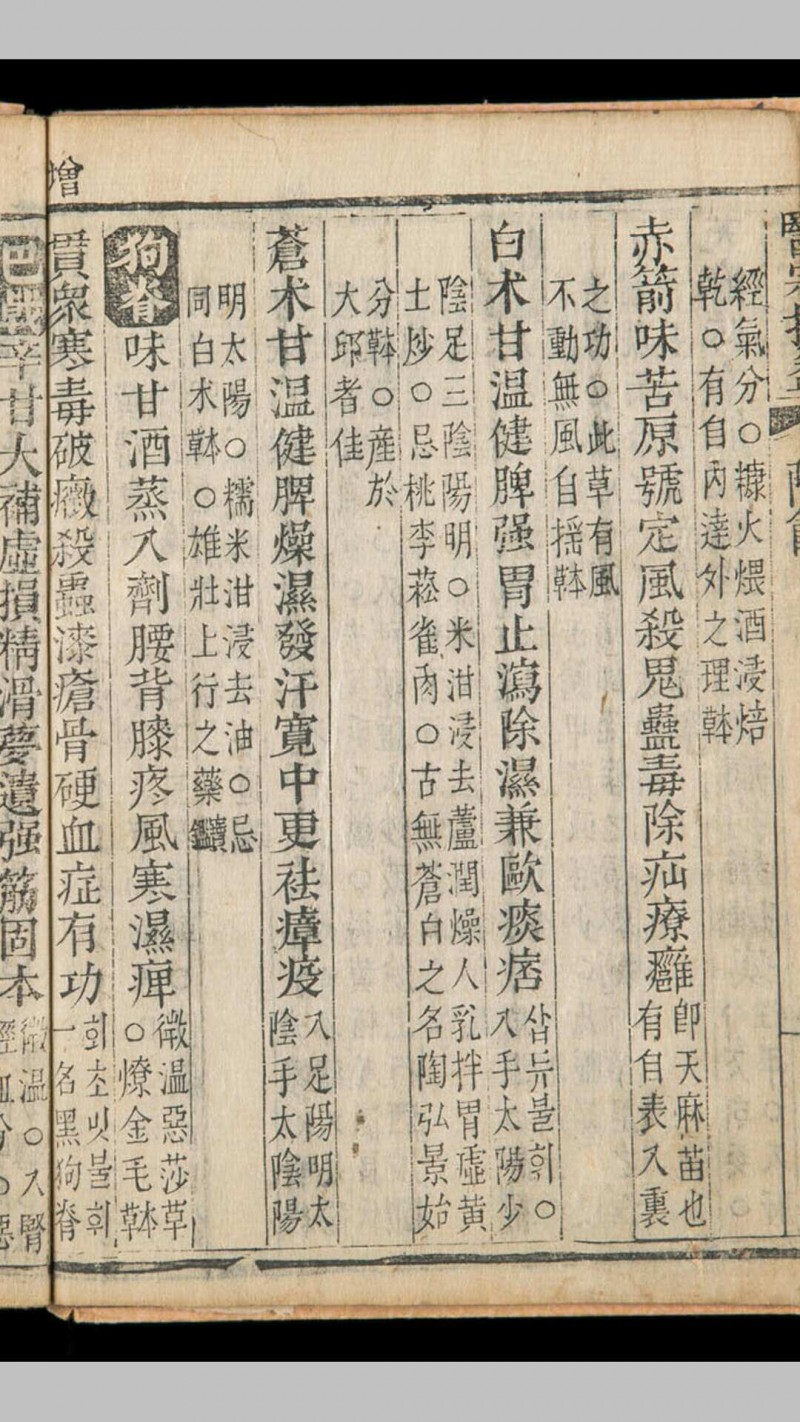 經氣分○糠火煨酒浸焙
乾○有自內達外之理𦼮
赤箭味苦原號定風殺鬼蠱毒除疝療癰
卽天麻苗也
有自表入裏
之功○此草有風
不動無風自搖𦼮
白朮甘温健脾强胃止瀉除濕兼歐痰痞
삽듀불휘○
入手太陽少
陰足三陰陽明○米泔浸去蘆潤燥人乳拌胃虛黃
土炒○忌桃李菘雀肉○古無蒼白之名陶弘景始
分○産於
大邱者佳
蒼朮甘温健脾燥濕發汗寬中更祛瘴疫
入足陽明太
陰手太陰陽
明太陽○糯米泔浸去油○忌
同白朮○雄壯上行之藥
狗脊味甘酒蒸入劑腰背膝疼風寒濕痺
微温惡莎草
○燎金毛
貫衆寒毒破癥殺蟲漆瘡骨硬血症有功
회초밋불휘
一名黑狗脊
辛甘大補虛損精滑夢遺强筋固本
微温○入腎
增